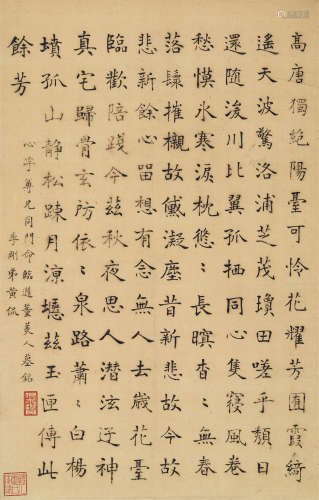 高唐獨絕陽臺可憐花耀芳囿霞綺
遙天波驚洛浦芝茂瓊田嗟乎頹日
還隨浚川比翼孤栖同心隻寢風卷
愁幙冰寒淚枕悠〻長暝杳〻無春
落鬟摧櫬故黛凝塵昔新悲故今故
悲新餘心留想有念無人去歲花臺
臨歡陪踐今茲秋夜思人潛泫迎神
真宅歸骨玄房依〻泉路蕭〻白楊
墳孤山靜松疎月涼瘞茲玉匣傳此
餘芳
心孚尊兄同門命臨隋董美人墓銘
季剛弟黃侃